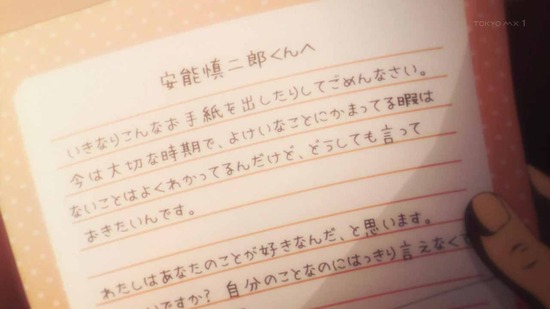 TOKYO MX 1
安能慎二郎くんへ
いきなりこんなお手紙を出したりしてごめんなさい。
今は大切な時期で、よけいなことにかまってる暇は
ないことはよくわかってるんだけど、どうしても言って
おきたいんです。
わたしはあなたのことが好きなんだ、と思います。
いですか? 自分のことなのにはっきり言えなくて